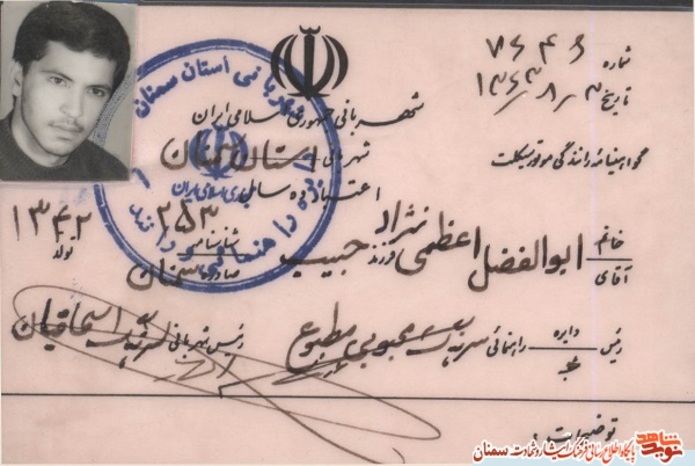 شماره ۷۶۴۶
تاریخ ۱۳۶۳/۸/۳
شهربانی جمهوری اسلامی ایران
شهربانی استان سمنان
گواهینامه رانندگی موتور سیکلت
اعتبار ده سال
خانم
آقای
ابوالفضل اعظمی نژاد فرزند حبیب شناسنامه ۲۵۳ تولد ۱۳۴۲
صادره سمنان
رئیس دایره راهنمائی محبوبی مطبوع رئیس شهربانی
توضیحات:
شهربانی استان سمنان
جمهوری اسلامی ایران
نوید شاهد
پایگاه اطلاع رسانی فرهنگ ایثار و شهادت سمنان